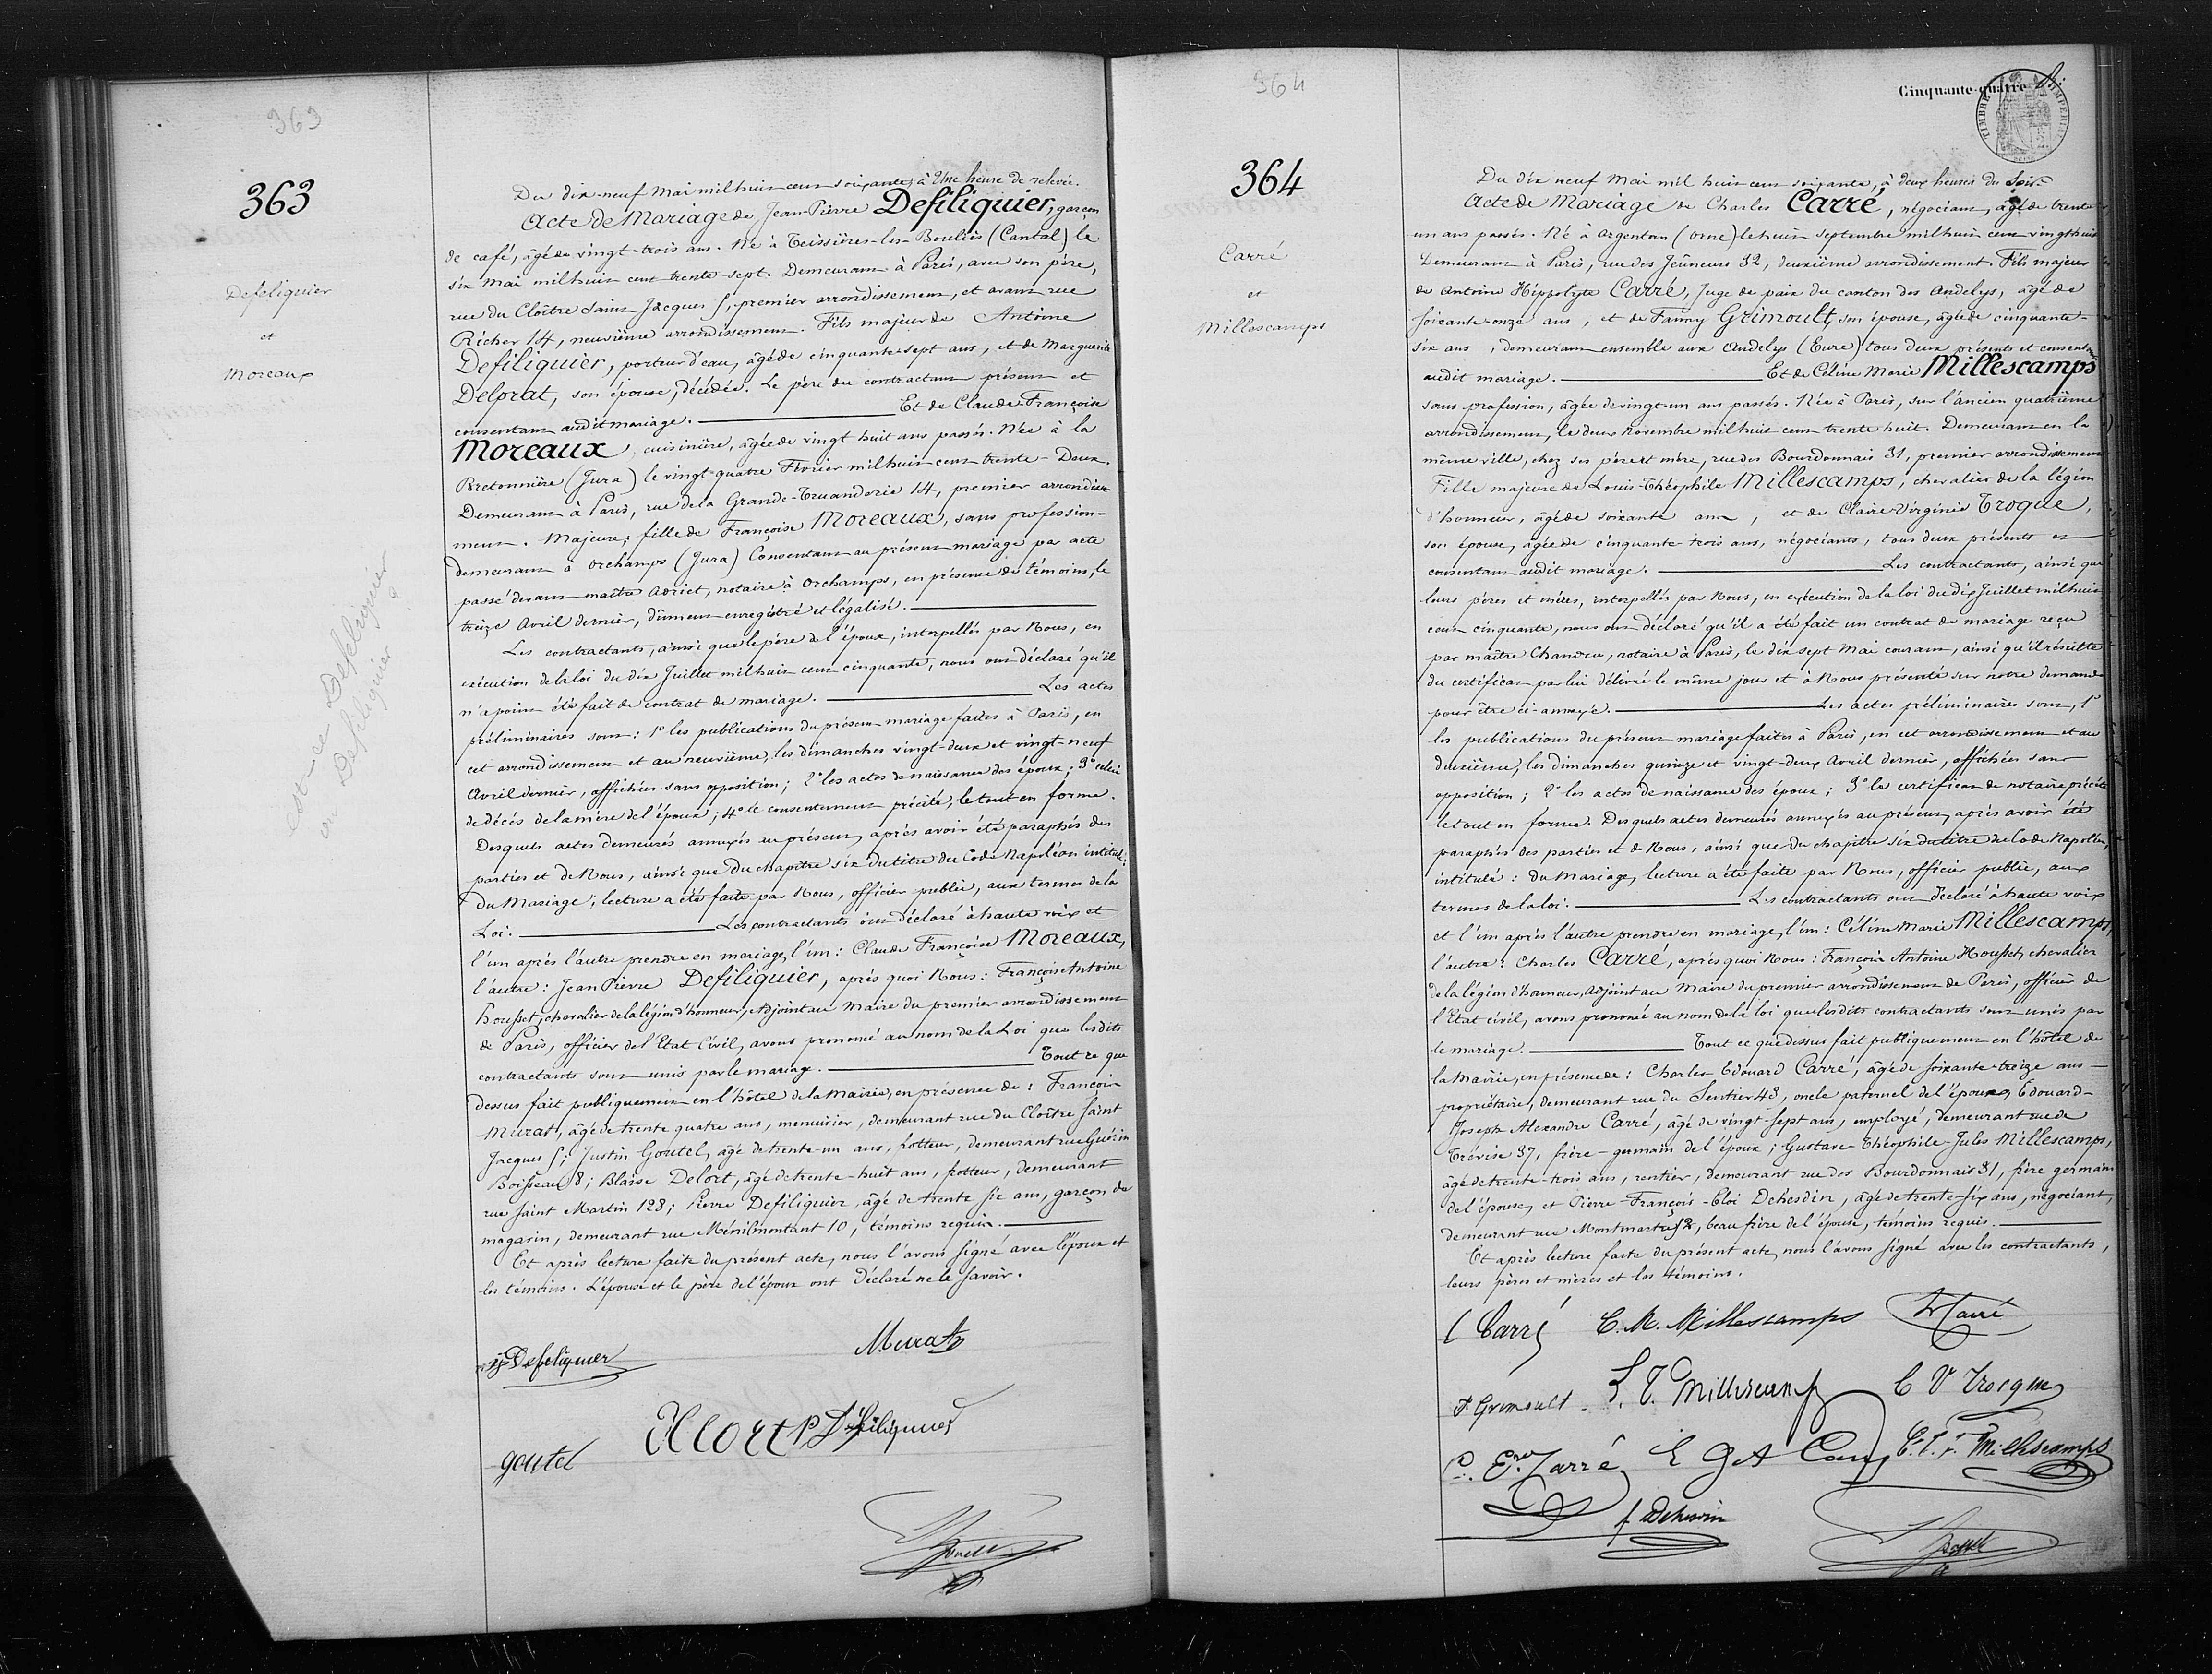 363
363
Defeliquier
et
Moreaux
est-ce Defeliquier
ou Defiliquier ?
Du dix-neuf Mai mil huit cent soixante, à Une heure de relevée.
Acte de Mariage de Jean-Pierre Defiliquier, garçon
de café, âgé de vingt-trois ans. Né à Teissières-les-Bouliès (Cantal) le
six Mai mil huit cent trente-sept. Demeurant à Paris, avec son père,
rue du Cloître Saint Jacques 5, premier arrondissement, et avant rue
Richer 14, neuvième arrondissement. Fils majeur de Antoine
Defiliquier, porteur d'eau, âgé de cinquante-sept ans, et de Marguerite
Delprat, son épouse, décédée. Le père du contractant présent et
consentant audit mariage. Et de Claude Françoise
Moreaux, cuisinière, âgée de vingt huit ans passés. Née à la
Bretonnière (Jura) le vingt-quatre Février mil huit cent trente-Deux.
Demeurant à Paris, rue de la Grande-Truanderie 14, premier arrondisse-
ment. Majeure; fille de Françoise Moreaux, sans profession-
demeurant à Orchamps (Jura) Consentant au présent mariage par acte
passé devant maître Adriet, notaire à Orchamps, en présence de témoins, le
treize Avril dernier, dûment enregistré et légalisé.
Les contractants, ainsi que le père de l'époux, interpellés par Nous, en
exécution de la loi du dix Juillet mil huit cent cinquante, nous ont déclaré qu'il
n'a point été fait de contrat de mariage. Les actes
préliminaires sont: 1° les publications du présent mariage faites à Paris, en
cet arrondissement et au neuvième, les dimanches vingt-deux et vingt-neuf
Avril dernier, affichées sans opposition; 2° les actes de naissance des époux; 3° celui
de décès de la mère de l'époux; 4° le consentement précité, le tout en forme.
Desquels actes demeurés annexés au présent, après avoir été paraphés des
parties et de Nous, ainsi que du chapitre six du titre du Code Napoléon intitulé:
Du Mariage, lecture a été faite par Nous, officier public, aux termes de la
Loi. Les contractants ont déclaré à haute voix et
l'un après l'autre prendre en mariage, l'un: Claude Françoise Moreaux,
l'autre: Jean Pierre Defiliquier, après quoi Nous: François Antoine
Housset, chevalier de la légion d'honneur, Adjoint au Maire du premier arrondissement
de Paris, officier de l'Etat Civil, avons prononcé au nom de la Loi que lesdits
contractants sont unis par le mariage. Tout ce que
dessus fait publiquement en l'hôtel de la Mairie, en présence de: François
Murat, âgé de trente quatre ans, menuisier, demeurant rue du Cloître Saint
Jacques 5; Justin Goutel, âgé de trente-un ans, frotteur, demeurant rue Guérin
Boisseau 8; Blaise Delort, âgé de trente-huit ans, frotteur, demeurant
rue Saint Martin 128; Pierre Defiliquier, âgé de trente six ans, garçon de
magasin, demeurant rue Ménilmontant 10, témoins requis.
Et après lecture faite du présent acte, nous l'avons signé avec l'époux et
les témoins. L'épouse et le père de l'époux ont Déclaré ne le savoir.
Defeliquier Murat
goutel Delort P. Defiliquier
Housset
364
Cinquante-quatre
TIMBRE IMPERIAL
364
Carré
et
Millescamps
Du dix neuf Mai mil huit cent soixante, à deux heures du Soir.
Acte de Mariage de Charles Carré, négociant, âgé de trente
un ans passés. Né à Argentan (Orne) le huit Septembre mil huit cent vingt huit
Demeurant à Paris, rue des Jeûneurs 32, deuxième arrondissement. Fils majeur
de Antoine Hippolyte Carré, Juge de paix du canton des Andelys, âgé de
soixante-onze ans, et de Fanny Grimoult, son épouse, âgée de cinquante-
six ans, demeurant ensemble aux Andelys (Eure) tous deux présents et consentant
audit mariage. Et de Céline Marie Millescamps
sans profession, âgée de vingt-un ans passés. Née à Paris, sur l'ancien quatrième
arrondissement, le deux Novembre mil huit cent trente huit. Demeurant en la
même ville, chez ses père et mère, rue des Bourdonnais 31, premier arrondissement
Fille majeure de Louis-Théophile Millescamps, chevalier de la légion
d'honneur, âgé de soixante ans, et de Claire-Virginie Troque,
son épouse, âgée de cinquante trois ans, négociants, tous deux présents et
consentant audit mariage. Les contractants, ainsi que
leurs pères et mères, interpellés par Nous, en exécution de la loi du dix Juillet mil huit
cent cinquante, nous ont déclaré qu'il a été fait un contrat de mariage reçu
par maître Chandru, notaire à Paris, le dix sept Mai courant, ainsi qu'il résulte
du certificat par lui délivré le même jour et à Nous présenté sur notre demande
pour être ci-annexé. Les actes préliminaires sont, 1°
les publications du présent mariage faites à Paris, en cet arrondissement et au
deuxième, les dimanches quinze et vingt-deux Avril dernier, affichées sans
opposition; 2° les actes de naissance des époux; 3° le certificat de notaire précité
le tout en forme. Desquels actes demeurés annexés au présent, après avoir été
paraphés des parties et de Nous, ainsi que du chapitre six du titre du Code Napoléon,
intitulé: du Mariage, lecture a été faite par Nous, officier public, aux
termes de la loi. Les contractants ont déclaré à haute voix
et l'un après l'autre prendre en mariage, l'un: Céline Marie Millescamps,
l'autre: Charles Carré, après quoi Nous: François Antoine Housset, chevalier
de la légion d'honneur, Adjoint au Maire du premier arrondissement de Paris, officier de
l'Etat civil, avons prononcé au nom de la loi que lesdits contractants sont unis par
le mariage. Tout ce que dessus fait publiquement en l'hôtel de
la Mairie, en présence de: Charles-Edouard Carré, âgé de soixante-treize ans-
propriétaire, demeurant rue du Sentier 43, oncle paternel de l'époux, Edouard-
Joseph Alexandre Carré, âgé de vingt-sept ans, employé, demeurant rue de
Trévise 37, frère-germain de l'époux; Gustave-Théophile-Jules Millescamps,
âgé de trente-trois ans, rentier, demeurant rue des Bourdonnais 31, frère germain
de l'épouse, et Pierre-François-Eloi Dehesdin, âgé de trente-six ans, négociant,
demeurant rue Montmartre 52, beau frère de l'épouse, témoins requis.
Et après lecture faite du présent acte, nous l'avons signé avec les contractants,
leurs pères et mères et les témoins.
C Carré C. M. Millescamps Carré
F. Grimoult L. T. Millescamps C V Trocque
C. Ed Carré E J A Carré Millescamps
f Dehesdin
Housset